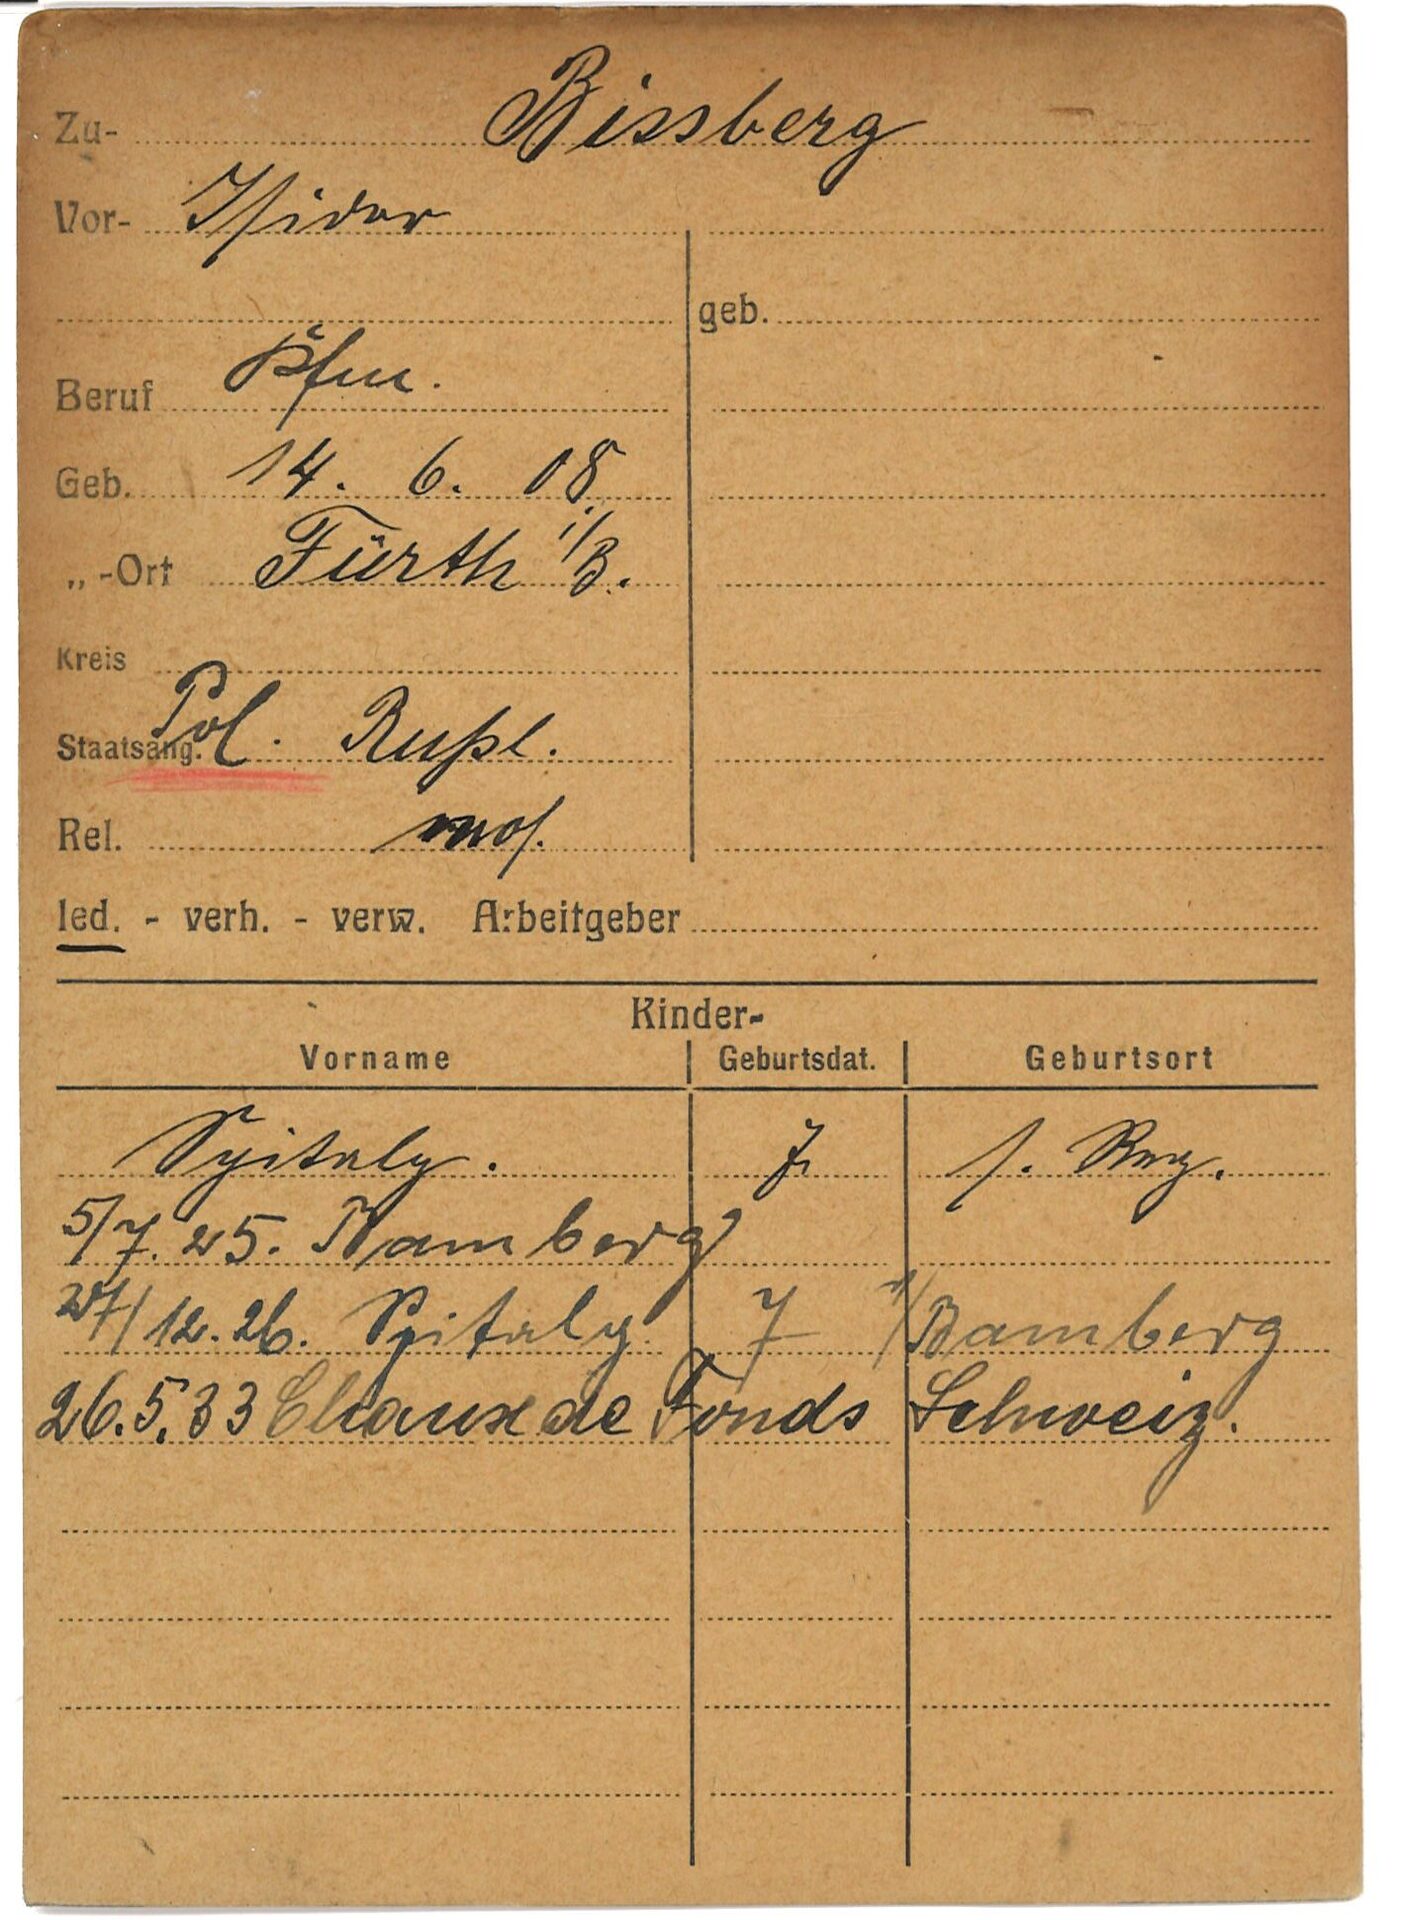 Zu- Bissberg
Vor- Isidor
geb.
Beruf Kfm.
Geb. 14. 6. 08.
„ -Ort Fürth i/B.
Kreis
Staatsang. Pol. Rußl.
Rel. mos.
led. - verh. - verw. Arbeitgeber
Kinder-
Vorname Geburtsdat. Geburtsort
Spitalg. 7 s. Reg.
5/7. 25. Bamberg
27/12. 26. Spitalg. 7 v/Bamberg
26.5.33 Chaux de Fonds Schweiz.